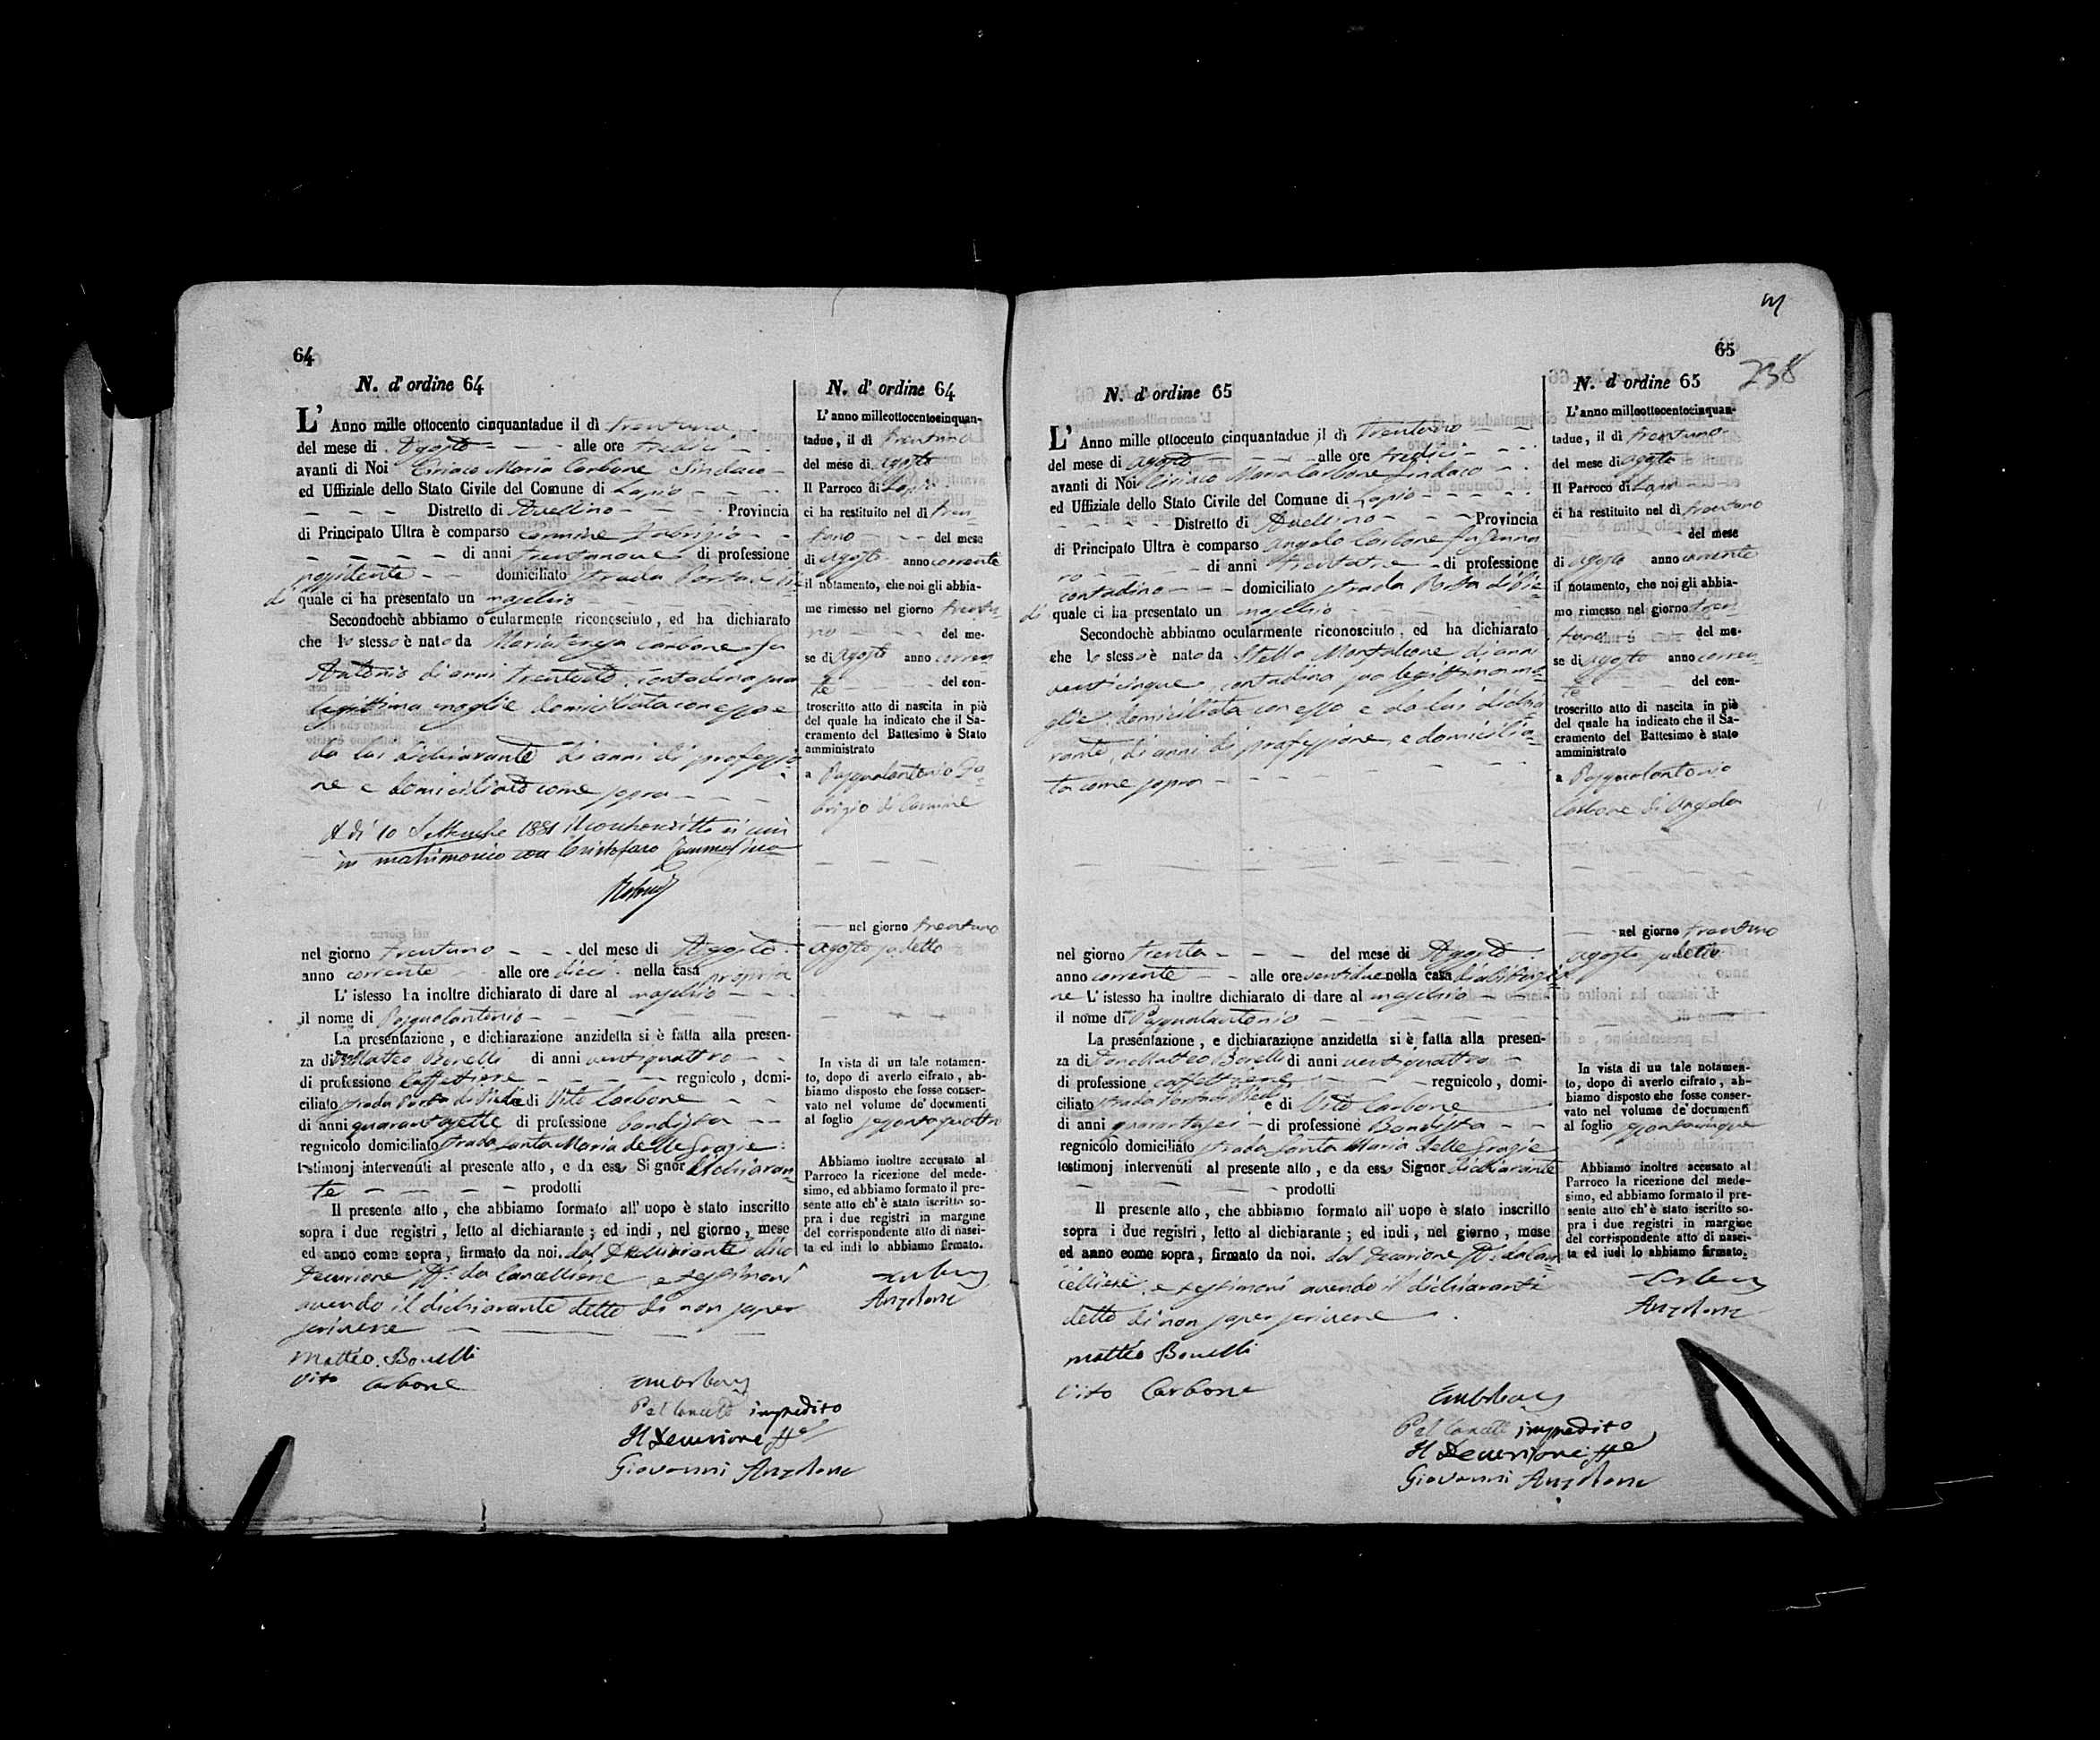 64
N. d' ordine 64
L' Anno mille ottocento cinquantadue il dì trentuno
del mese di Agosto alle ore tredici
avanti di Noi Ciriaco Maria Carbone Sindaco
ed Uffiziale dello Stato Civile del Comune di Lapio
Distretto di Avellino Provincia
di Principato Ultra è comparso Carmine
di anni trentanove di professione
domiciliato strada Porta
di quale ci ha presentato un maschio
Secondochè abbiamo ocularmente riconosciuto, ed ha dichiarato
che lo stesso è nato da Mariateresa Carbone fu
Antonio di anni trentotto, contadina sua
legittima moglie domiciliata con esso e
da lui dichiarante di anni di professio
ne e domiciliato come sopra
A dì 10 Settembre 1881 il controscritto si unì
in matrimonio con Cristofaro
nel giorno trentuno del mese di Agosto
anno corrente alle ore dieci nella casa propria
L' istesso ha inoltre dichiarato di dare al maschio
il nome di Pasqualantonio
La presentazione, e dichiarazione anzidetta si è fatta alla presen-
za di Matteo Bonelli di anni ventiquattro
di professione Caffettiere regnicolo, domi-
ciliato strada Porta di e di Vito Carbone
di anni quarantasette di professione bandista
regnicolo domiciliato strada Santa Maria delle Grazie
testimonj intervenuti al presente atto, e da esso Signor dichiaran-
te prodotti
Il presente atto, che abbiamo formato all' uopo è stato inscritto
sopra i due registri, letto al dichiarante; ed indi, nel giorno, mese
ed anno come sopra, firmato da noi. dal Dichiarante dico
Decurione ff: da Cancelliere e testimoni
avendo il dichiarante detto di non saper
scrivere
Matteo Bonelli
Vito Carbone
Pel Cancell impedito
Il Decurione ff
Giovanni Anzalone
N. d' ordine 64
L' anno milleottocentocinquan-
tadue, il dì trentuno
del mese di agosto
Il Parroco di Lapio
ci ha restituito nel dì tren-
tuno del mese
di agosto anno corrente
il notamento, che noi gli abbia-
mo rimesso nel giorno trentu-
no del me-
se di agosto anno corren-
te del con-
troscritto atto di nascita in piè
del quale ha indicato che il Sa-
cramento del Battesimo è Stato
amministrato
a Pasqualantonio Fa-
brizio di Carmine
nel giorno trentuno
agosto sudetto
In vista di un tale notamen-
to, dopo di averlo cifrato, ab-
biamo disposto che fosse conser-
vato nel volume de' documenti
al foglio sessantaquattro
Abbiamo inoltre accusato al
Parroco la ricezione del mede-
simo, ed abbiamo formato il pre-
sente atto ch' è stato iscritto so-
pra i due registri in margine
del corrispondente atto di nasci-
ta ed indi lo abbiamo firmato.
Anzalone
65
738
N. d' ordine 65
L' Anno mille ottocento cinquantadue il dì trentuno
del mese di agosto alle ore tredici
avanti di Noi Ciriaco Maria Carbone Sindaco
ed Uffiziale dello Stato Civile del Comune di Lapio
Distretto di Avellino Provincia
di Principato Ultra è comparso Angelo Carbone fu Genna
ro di anni trentatre di professione
contadino domiciliato strada Porta
di quale ci ha presentato un maschio
Secondochè abbiamo ocularmente riconosciuto, ed ha dichiarato
che lo stesso è nato da Stella di anni
venticinque, contadina sua legittima mo-
glie, domiciliata con esso e da lui dichia-
rante, di anni di professione, e domicilia-
ta come sopra
nel giorno trenta del mese di Agosto
anno corrente alle ore ventidue nella casa di abitazio-
ne L' istesso ha inoltre dichiarato di dare al maschio
il nome di Pasqualantonio
La presentazione, e dichiarazione anzidetta si è fatta alla presen-
za di Don Matteo Bonelli di anni ventiquattro
di professione caffettiere regnicolo, domi-
ciliato strada Porta di e di Vito Carbone
di anni quarantasei di professione Bandista
regnicolo domiciliato strada Santa Maria delle Grazie
testimonj intervenuti al presente atto, e da esso Signor dichiarante
prodotti
Il presente atto, che abbiamo formato all' uopo è stato inscritto
sopra i due registri, letto al dichiarante; ed indi, nel giorno, mese
ed anno come sopra, firmato da noi. dal Decurione ff: da Can-
celliere, e testimoni avendo il dichiarante
detto di non saper scrivere
Matteo Bonelli
Vito Carbone
Pel Cancell impedito
Il Decurione ff
Giovanni Anzalone
N. d' ordine 65
L' anno milleottocentocinquan-
tadue, il dì trentuno
del mese di agosto
Il Parroco di Lapio
ci ha restituito nel dì trentuno
del mese
di agosto anno corrente
il notamento, che noi gli abbia-
mo rimesso nel giorno tren-
tuno del me-
se di agosto anno corren-
te del con-
troscritto atto di nascita in piè
del quale ha indicato che il Sa-
cramento del Battesimo è stato
amministrato
a Pasqualantonio
Carbone di Angelo
nel giorno trentuno
agosto sudetto
In vista di un tale notamen-
to, dopo di averlo cifrato, ab-
biamo disposto che fosse conser-
vato nel volume de' documenti
al foglio sessantacinque
Abbiamo inoltre accusato al
Parroco la ricezione del mede-
simo, ed abbiamo formato il pre-
sente atto ch' è stato iscritto so-
pra i due registri in margine
del corrispondente atto di nasci-
ta ed indi lo abbiamo firmato.
Anzalone